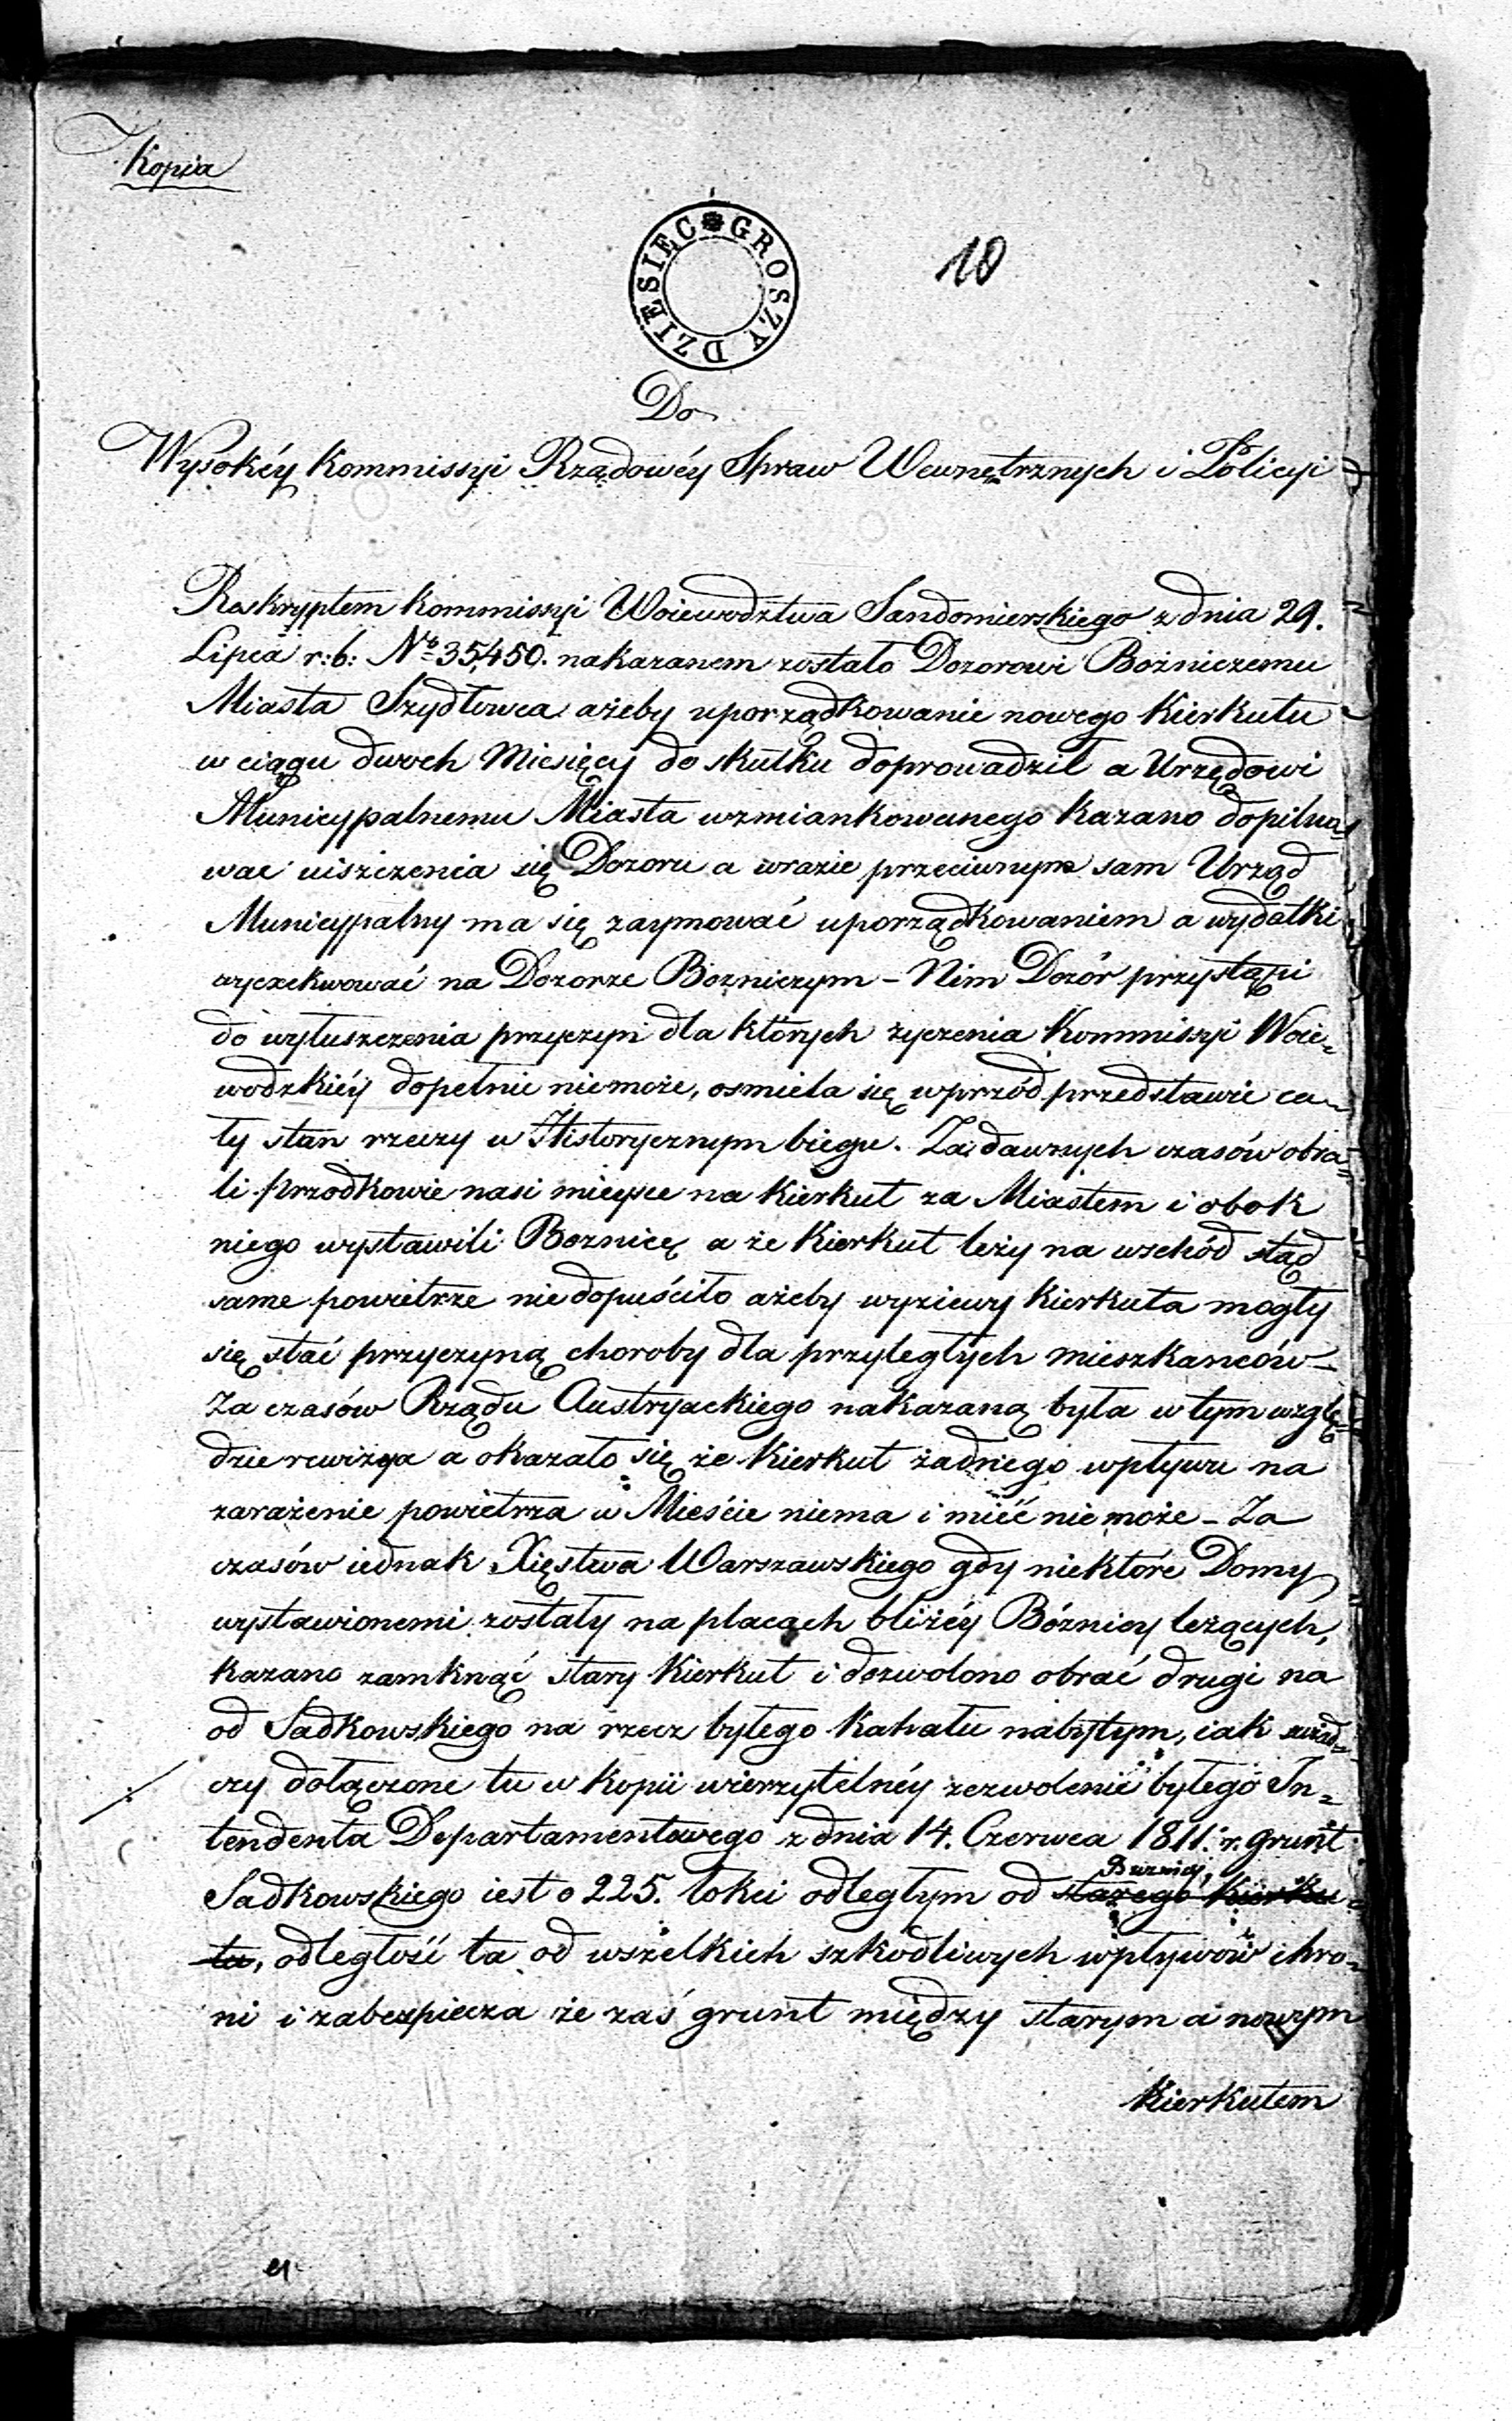 Kopia
DZIESIĘC GROSZY
10
Do
Wysokiéy Kommissyi Rządowéy Spraw Wewnętrznych i Policyi
Reskryptem Kommissyi Woiewodztwa Sandomierskiego z dnia 29.
Lipca r: b: No 35,450. nakazanem zostało Dozorowi Bożniczemu
Miasta Szydłowca ażeby uporządkowanie nowego Kierkutu
w ciągu dwoch Miesięcy do skutku doprowadził a Urzędowi
Municypalnemu Miasta wzmiankowanego kazano dopilno=
wac uiszczenia się Dozoru a wrazie przeciwnym sam Urząd
Municypalny ma się zaymować uporządkowaniem a wydatki
wyexekwować na Dozorze Bozniczym – Nim Dozór przystąpi
do wyłuszczenia przyczyn dla których życzenia Kommissyi Woie=
wodzkiéy dopełnic niemoże, osmiela się wprzód przedstawic ca=
ły stan rzeczy w Historycznym biegu. Za dawnych czasów obra=
li przodkowie nasi mieysce na Kierkut za Miastem i obok
niego wystawili Boznicę a że Kierkut leży na wschód stąd
same powietrze niedopuściło ażeby wyziewy Kierkuta mogły
się stać przyczyną choroby dla przyległych mieszkancow –
Za czasów Rządu Austryackiego nakazaną była w tym wzglę=
dzie rewizya a okazało się że Kierkut żadnego wpływu na
zarażenie powietrza w Mieście niema i mieć nie może – Za
czasów iednak Xięstwa Warszawskiego gdy niektóre Domy
wystawionemi zostały na placach bliżéy Bóżnicy leżących,
kazano zamknąć stary Kierkut i dozwolono obrać drugi na
od Sadkowskiego na rzecz byłego Kahału nabytym, iak swiad=
czy dołączone tu w kopii wierzytelnéy zezwolenie byłego In=
tendenta Departamentowego z dnia 14. Czerwca 1811. r. grunt
Boznicy,
Sadkowskiego iest o 225. łokci odległym od starego Kierku=
tu, odległość ta od wszelkich szkodliwych wpływów chro=
ni i zabezpiecza że zaś grunt między starym a nowym
Kierkutem